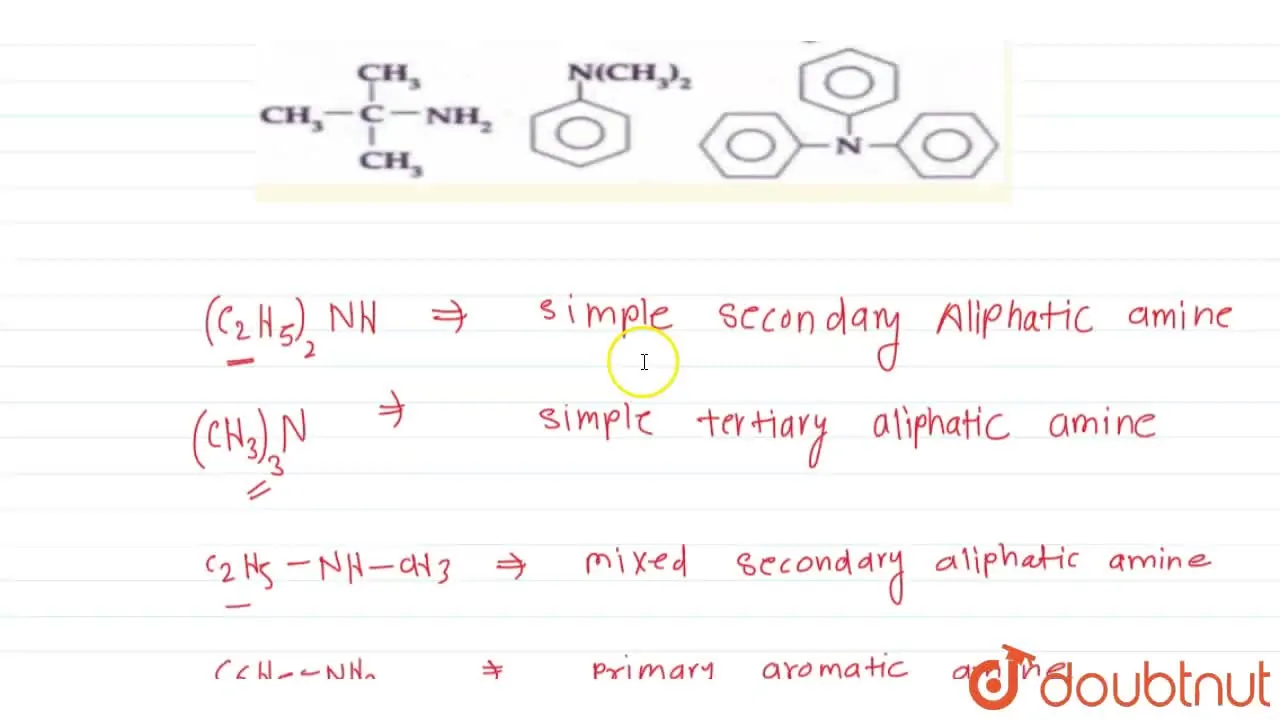 CH₃
CH₃-C-NH₂
CH₃
N(CH₃)₂
N
(C₂H₅)₂ NH ⇒ simple secondary Aliphatic amine
(CH₃)₃N ⇒ simple tertiary aliphatic amine
C₂H₅-NH-CH₃ ⇒ mixed secondary aliphatic amine
primary aromatic amine
doubtnut